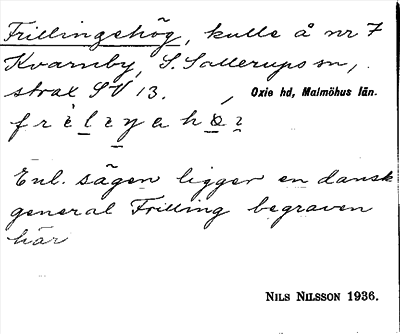 Frillingshög, kulle å nr 7
Kvarnby, S. Sallerups sn,
strax SV 13. Oxie hd, Malmöhus län.
Enl. sägen ligger en dansk
general Frilling begraven
här
NILS NILSSON 1936.